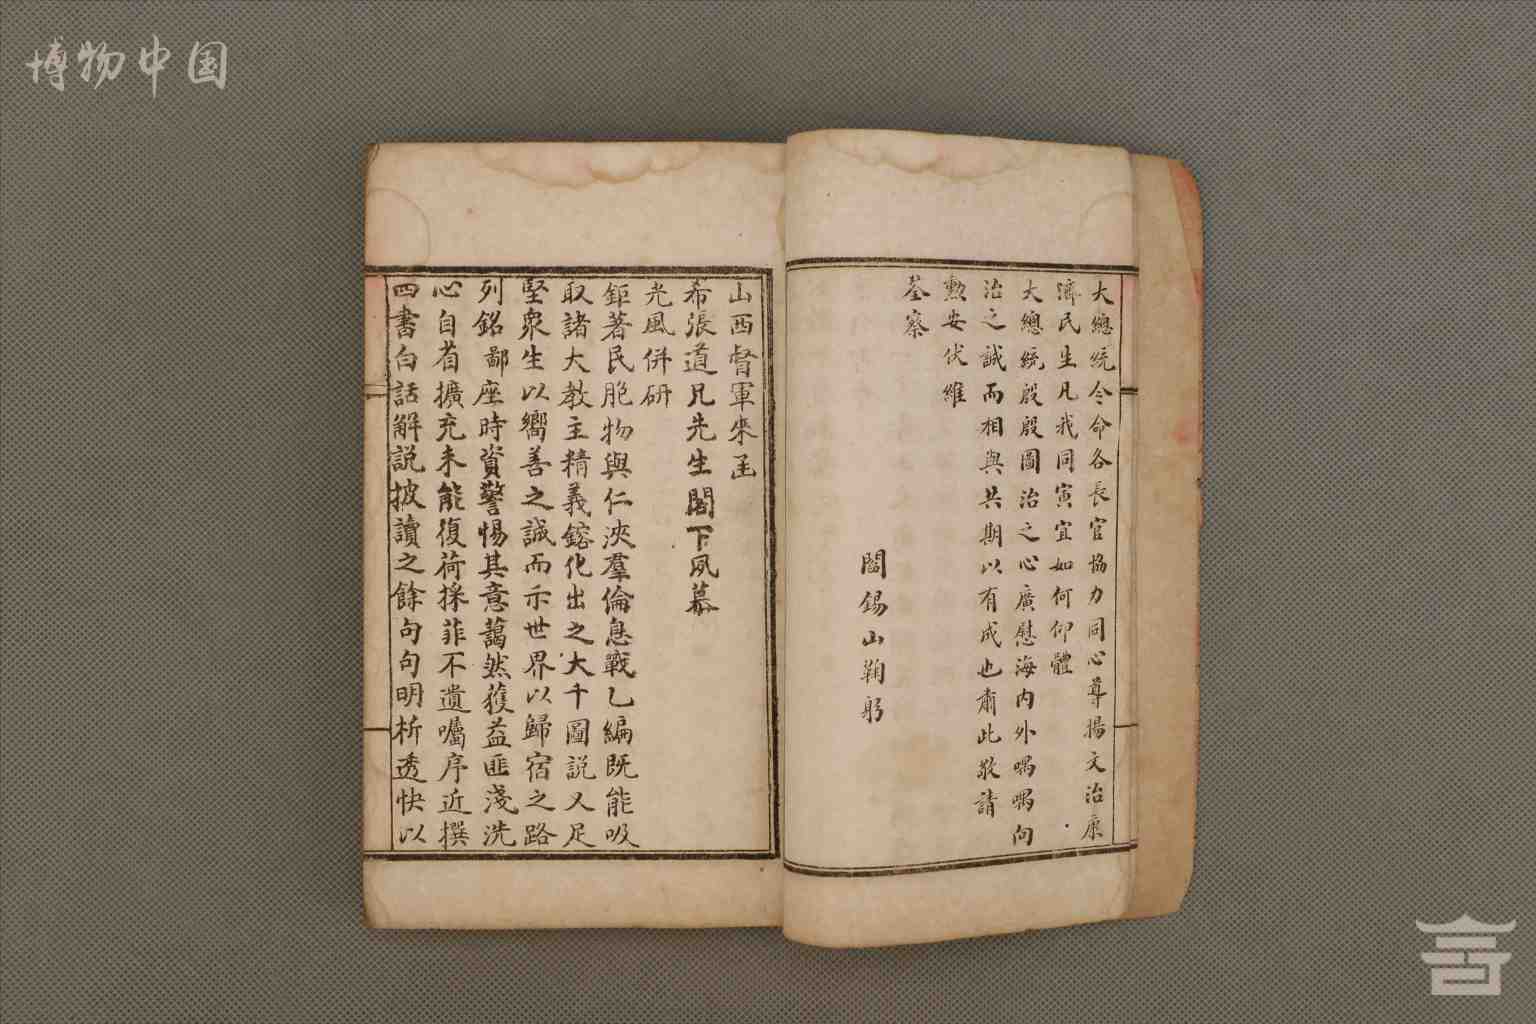 博物中国
大總統令命各長官協力同心尊揚文治康
濟民生凡我同寅宜如何仰體
大總統殷殷圖治之心廣慰海內外喁喁向
治之誠而相與共期以有成也肅此敬請
勲安伏維
荃察
閻錫山鞠躬
山西督軍來函
希張道兄先生閣下夙慕
光風併研
鉅著民胞物與仁浹羣倫息戰乙編既能吸
取諸大教主精義鎔化出之大千圖説又足
堅衆生以嚮善之誠而示世界以歸宿之路
列銘鄙座時資警惕其意藹然獲益匪淺洗
心自省擴充未能復荷採菲不遺囑序近撰
四書白話解説披讀之餘句句明析透快以